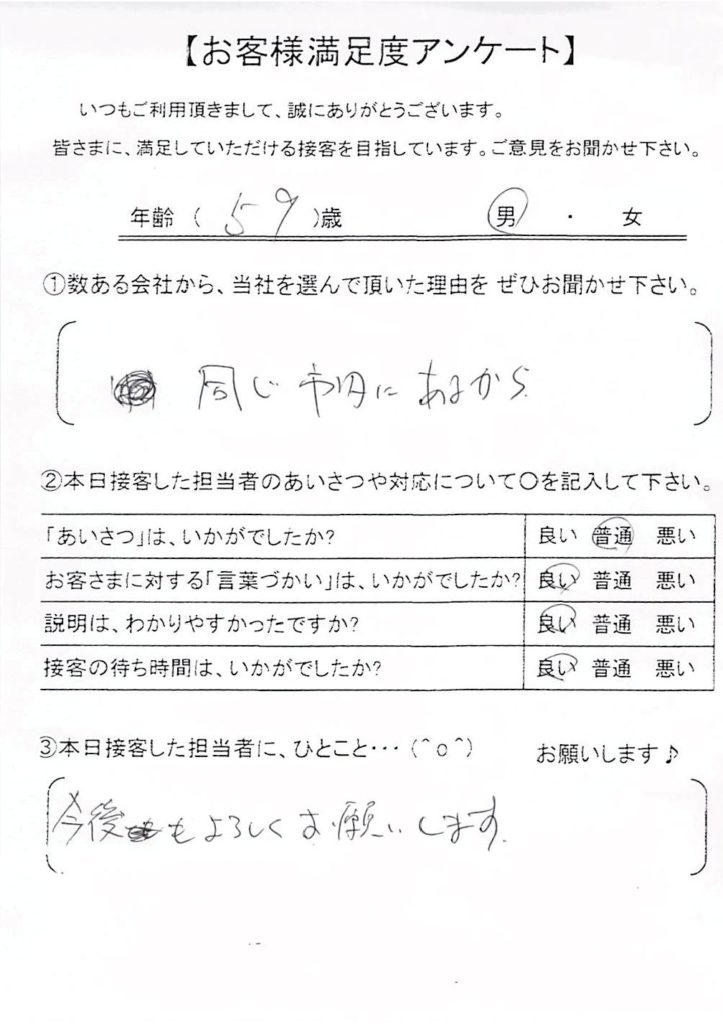 【お客様満足度アンケート】
いつもご利用頂きまして、誠にありがとうございます。
皆さまに、満足していただける接客を目指しています。ご意見をお聞かせ下さい。
年齢（ 59 ）歳 男 ・ 女
①数ある会社から、当社を選んで頂いた理由を ぜひお聞かせ下さい。
同じ市内にあるから
②本日接客した担当者のあいさつや対応について〇を記入して下さい。
「あいさつ」は、いかがでしたか? 良い 普通 悪い
お客さまに対する「言葉づかい」は、いかがでしたか? 良い 普通 悪い
説明は、わかりやすかったですか? 良い 普通 悪い
接客の待ち時間は、いかがでしたか? 良い 普通 悪い
③本日接客した担当者に、ひとこと･･･（＾o＾） お願いします♪
今後もよろしくお願いします。